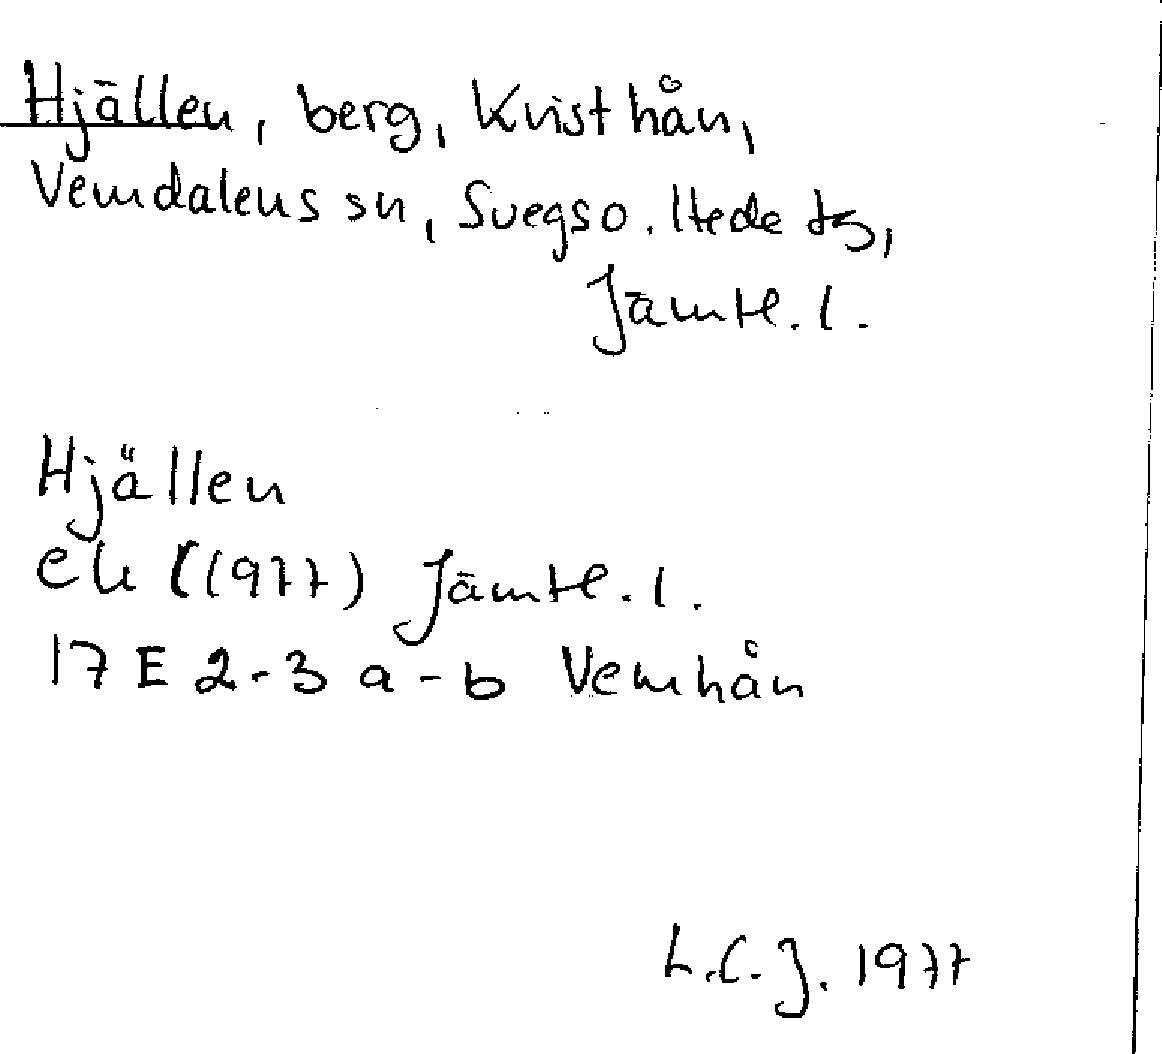 Hjällen, berg, Kvisthån,
Vemdalens sn, Svegs o. Hede ts,
Jämtl. l.
Hjällen
ek (1977) Jämtl. l.
17 E 2-3 a-b Vemhån
L.C.J. 1977